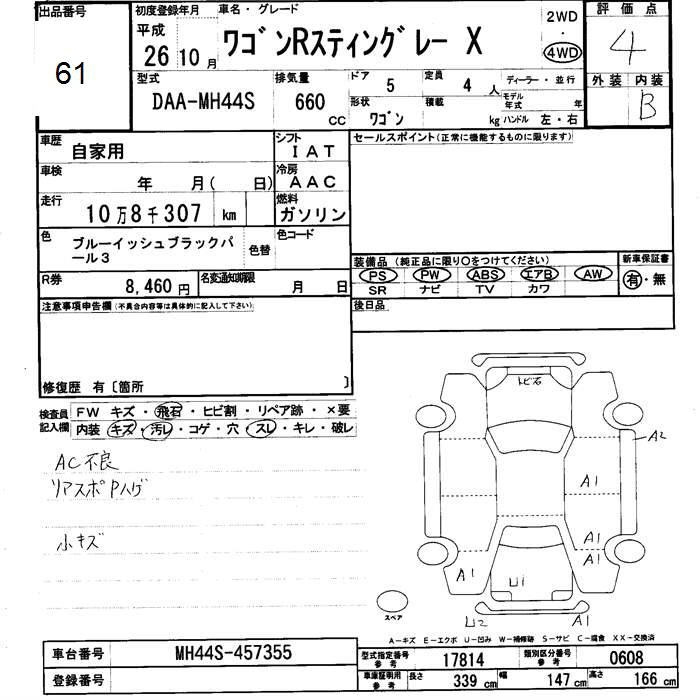 出品番号
61
初度登録年月
平成
26 10 月
車名・グレード
ワゴンRスティングレー X
2WD
・
4WD
評価点
4
外装 内装
B
型式
DAA-MH44S
排気量
660
cc
ドア
5
定員
4 人
形状
ワゴン
積載
kg
ディーラー・並行
モデル年式
年
ハンドル 左・右
車歴
自家用
シフト
IAT
車検
年 月( 日)
冷房
AAC
走行
10万8千307 km
燃料
ガソリン
色
ブルーイッシュブラックパール3
色替
色コード
R券
8,460 円
名変通知期限
月 日
セールスポイント(正常に機能するものに限ります)
装備品(純正品に限り○をつけてください)
PS PW ABS エアB AW
SR ナビ TV カワ
新車保証書
有・無
後日品
注意事項申告欄(不具合内容等は具体的に記入して下さい)
修復歴 有〔箇所 〕
検査員記入欄
FW キズ・飛石・ヒビ割・リペア跡・×要
内装 キズ・汚レ・コゲ・穴・スレ・キレ・破レ
AC不良
リアスポPハゲ
小キズ
トビ石
A2
A1
A1
A1
A1
U1
U2
A1
スペア
A-キズ E-エクボ U-凹み W-補修跡 S-サビ C-腐食 XX-交換済
車台番号
MH44S-457355
登録番号
型式指定番号
参考
17814
類別区分番号
参考
0608
車庫証明用
参考
長さ
339 cm
幅
147 cm
高さ
166 cm